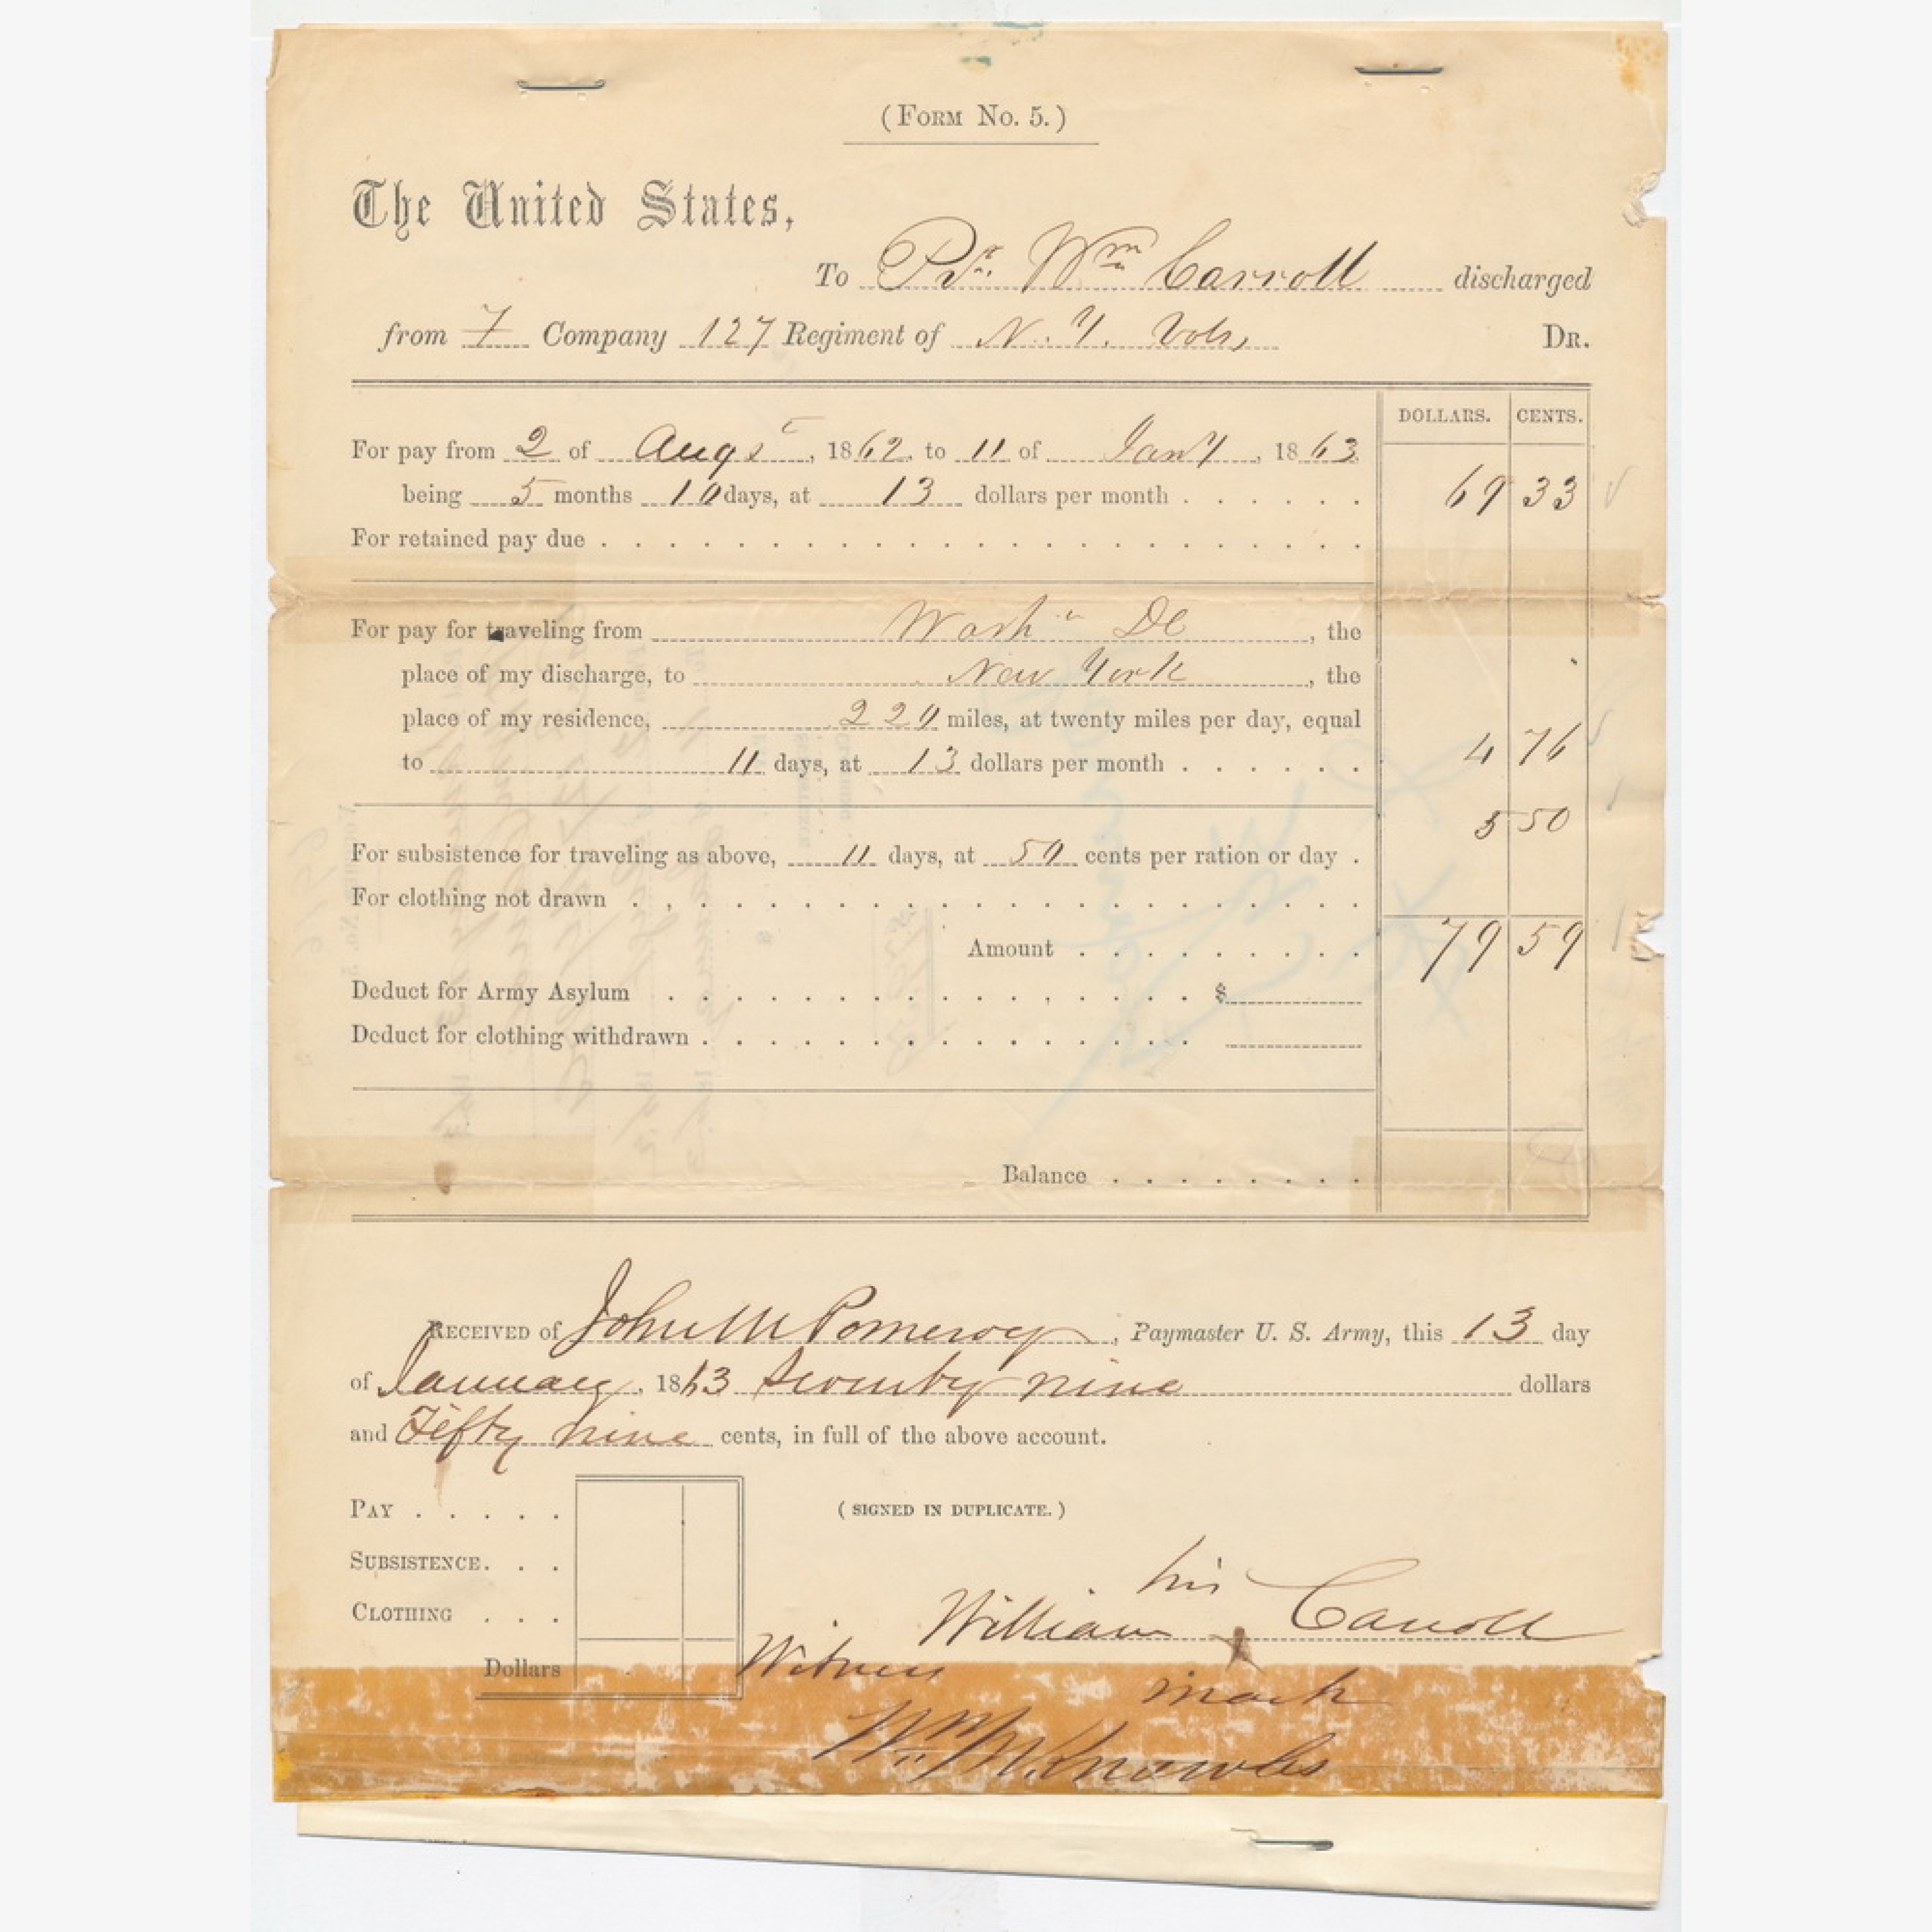 (FORM NO. 5.)
The United States,
To Pvt. Wm Carroll discharged
from F Company 127 Regiment of N. Y. Vols, DR.
DOLLARS. CENTS.
For pay from 2 of Augst, 1862, to 11 of Jany, 1863,
being 5 months 10 days, at 13 dollars per month . . . . . . 69 33
For retained pay due
For pay for traveling from Washn DC, the
place of my discharge, to New York, the
place of my residence, 220 miles, at twenty miles per day, equal
to 11 days, at 13 dollars per month . . . . . . 4 76
5 50
For subsistence for traveling as above, 11 days, at 50 cents per ration or day .
For clothing not drawn
Amount . . . . . . . . . 79 59
Deduct for Army Asylum $
Deduct for clothing withdrawn
Balance
RECEIVED of John M Pomeroy, Paymaster U. S. Army, this 13 day
of January, 1863 Seventy nine dollars
and Fifty nine cents, in full of the above account.
PAY
(SIGNED IN DUPLICATE.)
SUBSISTENCE
his
CLOTHING
William X Carroll
Witness
Dollars
mark
Wm M. Knowles